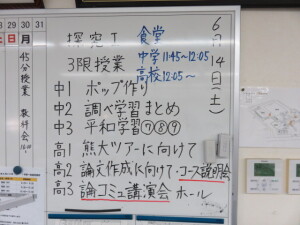 28 29 30 31
土 日 月
45分授業
探究I 食堂
3限授業 中学11:45〜12:05
高校12:05〜
6月14日(土)
中1 ポップ作り
中2 調べ学習まとめ
中3 平和学習⑦⑧⑨
高1 熊大ツアーに向けて
高2 論文作成に向けて・コース説明会
高3 論コミュ講演会 ホール